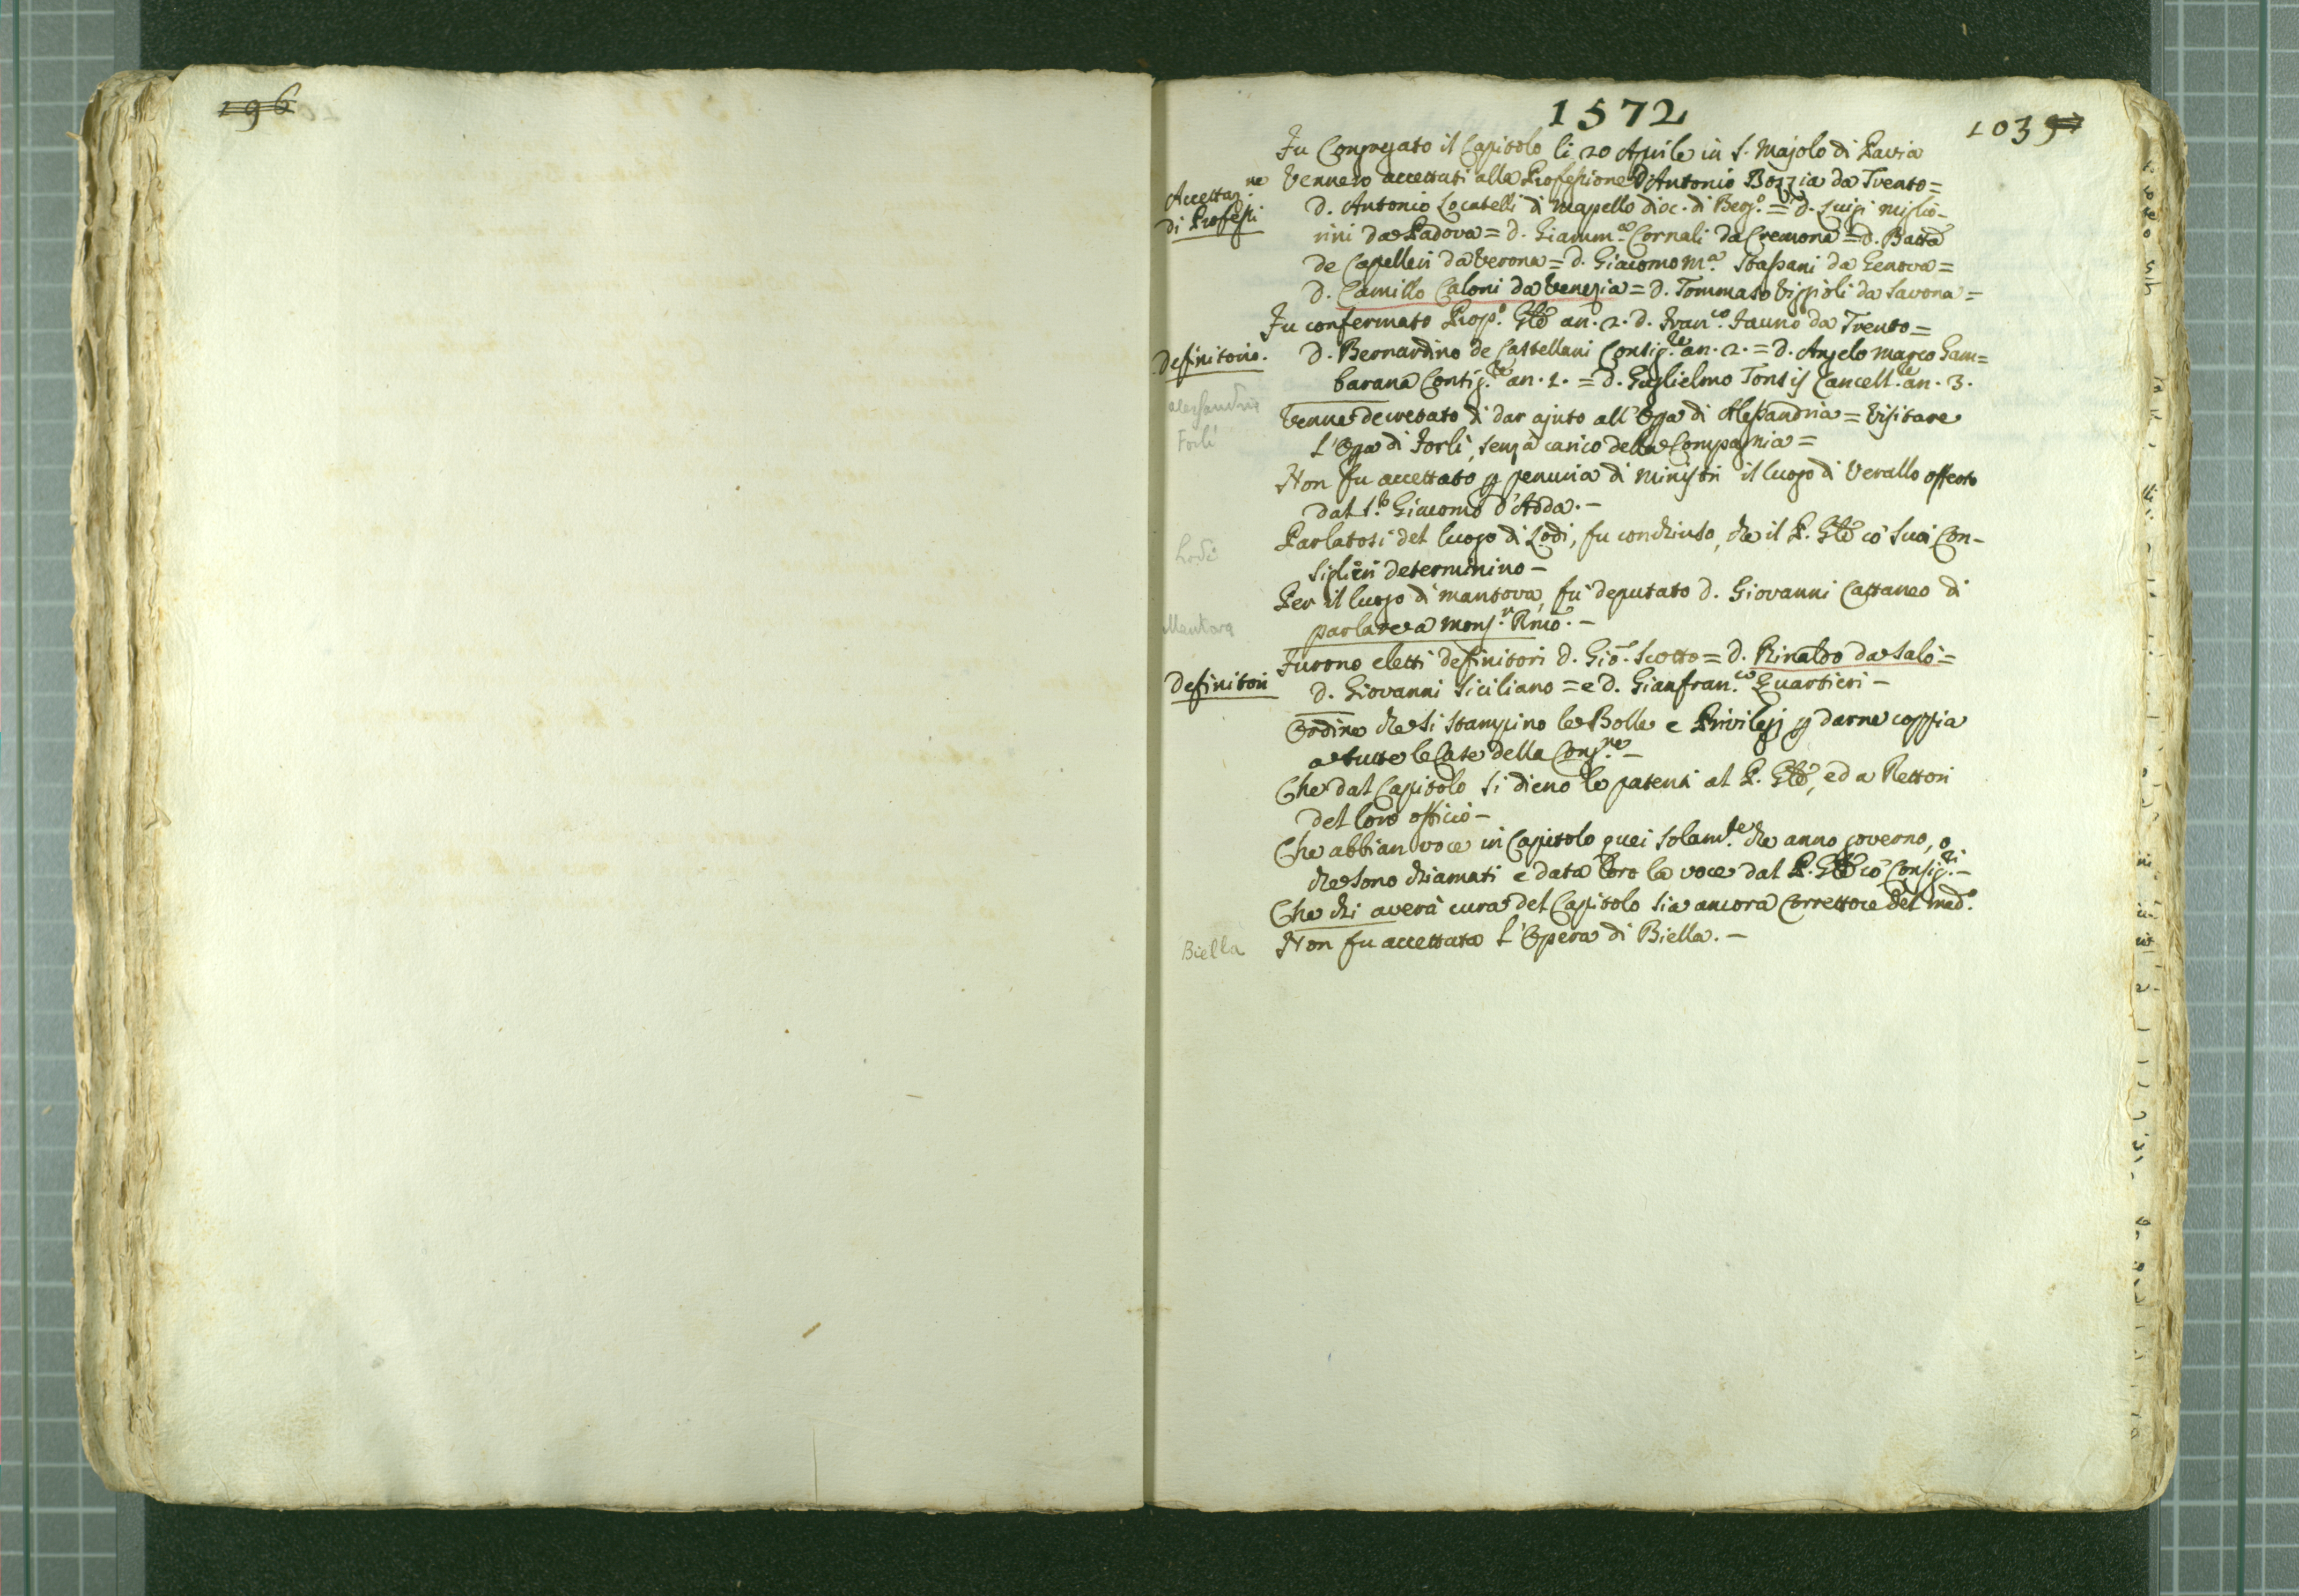 196
1572
103
Fu Congregato il Capitolo li 20 Aprile in S. Majolo di Pavia
Accettaz.ne
di Professi
Vennero accettati alla Professione D Antonio Bozzia da Trento =
D. Antonio Locatelli di Mapello dioc. di Berg.o = D. Luigi Miglio-
rini da Padova = D. Giamm.a Cornali da Cremona = D. Batta
de Capelleri da Verona = D. Giacomo M.a Stassani da Genova =
D. Camillo Caloni da Venezia = D. Tommaso da Savona =
Fu confermato Prop.o Gñle an. 2. D. Fran.co Fauno da Trento =
Definitorio.
D. Bernardino de Castellani Consig.re an. 2. = D. Angelo Marco Gam=
barana Consig.re an. 1. = D. Guglielmo Tonso Cancell.re an. 3.
Alessandria
Venne decretato di dar ajuto all' Opa di Alessandria = Visitare
Forlì
L'Opa di Forlì, senza carico della Compagnia =
Non fu accettato p penuria di Ministri il luogo di Verallo offerto
dal S.r Giacomo d'Adda. -
Lodi
Parlatosi del luogo di Lodi, fu conchiuso, che il P. Gñle co' suoi Con-
siglieri determinino -
Mantova
Per il luogo di Mantova, fu deputato D. Giovanni Cattaneo di
parlare a Mons.r Rmo. -
Furono eletti definitori D. Gio. Scotto = D. Rinaldo da Salò =
Definitori
D. Giovanni Siciliano = e D. Gianfran.co Quartieri -
Ordine che si stampino le Bolle e Privilegj p darne coppia
a tutte le Case della Cong.ne -
Che dal Capitolo si dieno le patenti al P. Gñle, ed a Rettori
del loro officio -
Che abbian voce in Capitolo quei solam.te che anno governo, o
che sono chiamati e data loro la voce dal P. Gñle co' Consig.ri -
Che chi averà cura del Capitolo sia ancora Correttore del med.o
Biella
Non fu accettata l'Opera di Biella. -